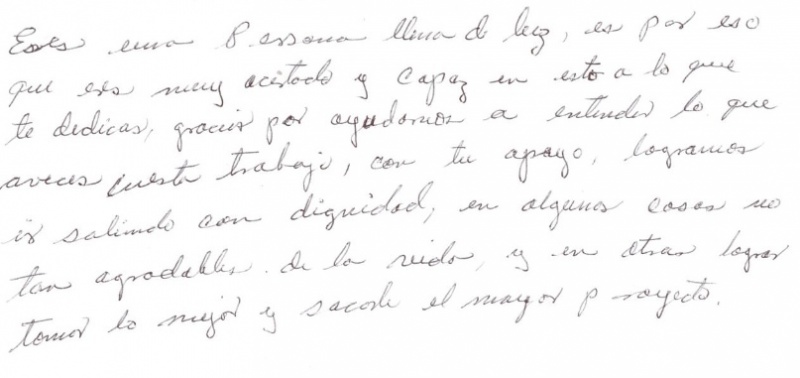 Eres una Persona llena de luz, es por eso
que eres muy acertado y capaz en esto a lo que
te dedicas, gracias por ayudarnos a entender lo que
aveces cuesta trabajo, con tu apoyo, logramos
ir saliendo con dignidad, en algunas cosas no
tan agradables de la vida, y en otras lograr
tomar lo mejor y sacarle el mayor proyecto.